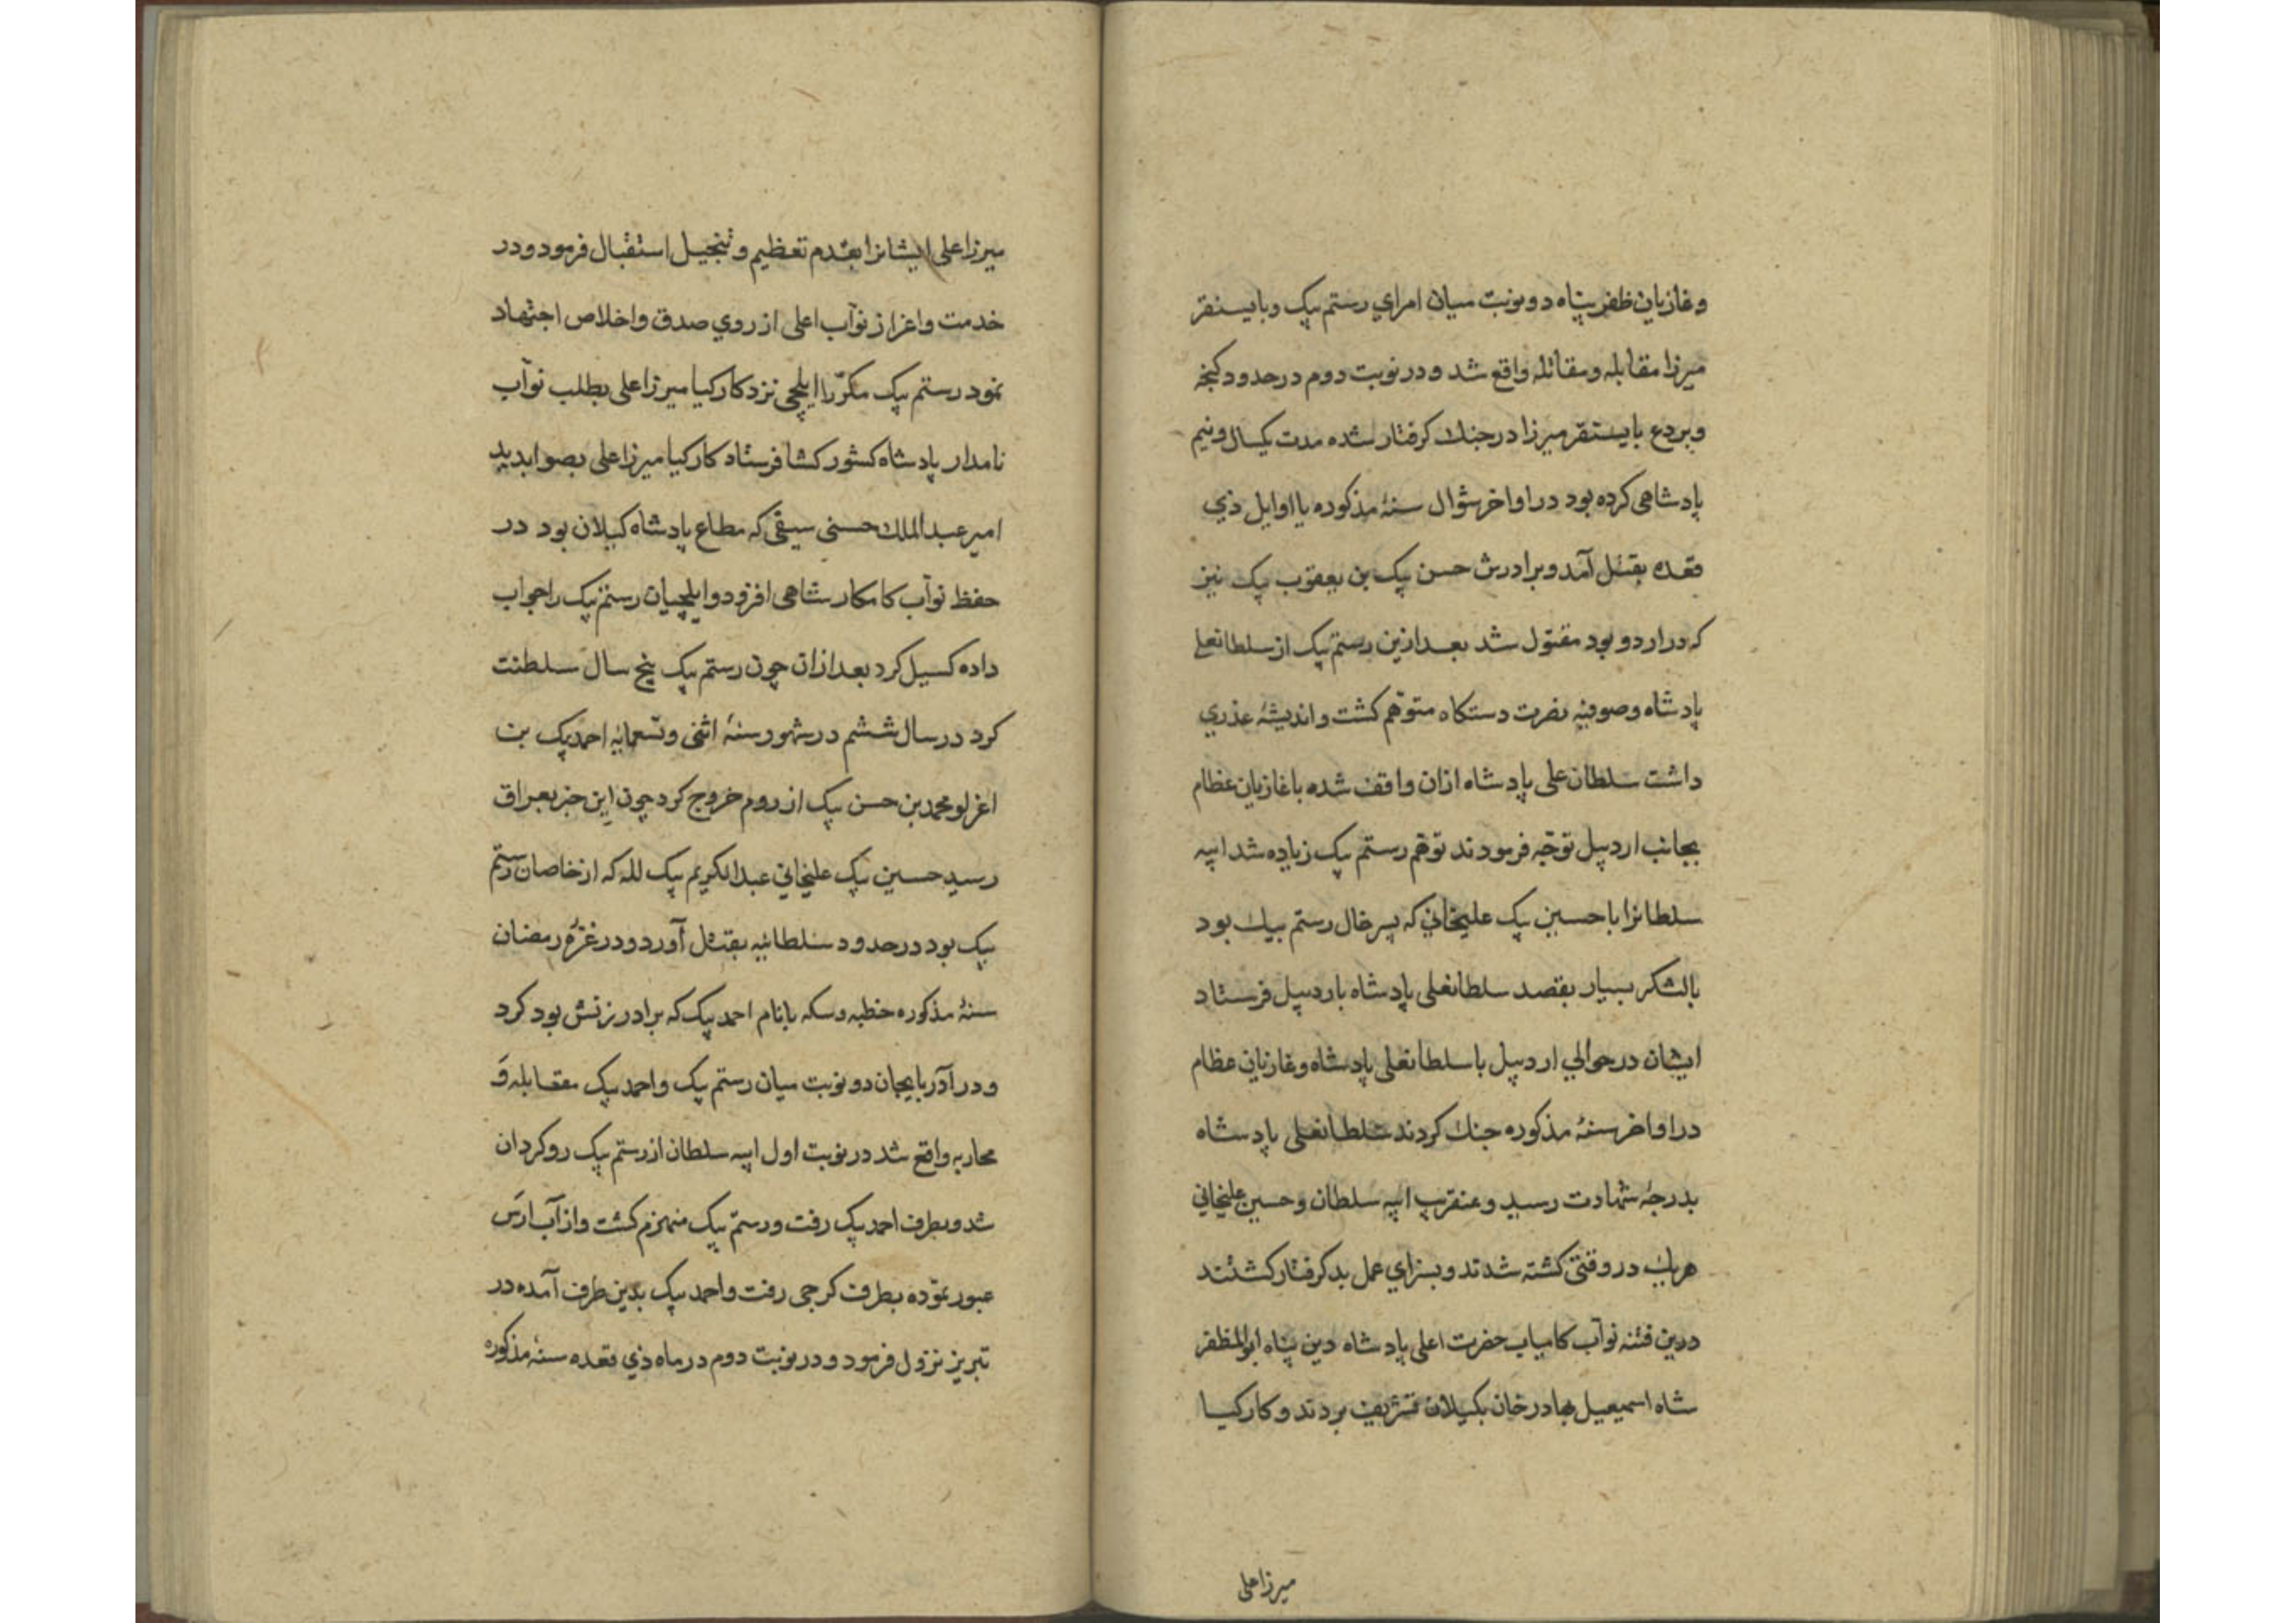 وغازیان ظفر پناه دو نوبت میان امرای رستم پیک و بایسنقر
میرزا مقابله و مقاتله واقع شد و در نوبت دوم در حدود کنجه
و بردع بایسنقر میرزا در جنک کرفتار شده مدت یکسال و نیم
پادشاهی کرده بود در اواخر شوال سنهٔ مذکوره یا اوایل ذی
قعده بقتل آمد و برادرش حسن پیک بن یعقوب پیک نیز
که در اردو بود مقتول شد بعد ازین رستم پیک از سلطانعلی
پادشاه و صوفیه نصرت دستکاه متوهّم کشت و اندیشهٔ عذری
داشت سلطان علی پادشاه ازان واقف شده با غازیان عظام
بجانب اردپیل توجّه فرمودند توهّم رستم پیک زیاده شد ایپه
سلطانرا با حسین پیک علیخانی که پسر خال رستم بیک بود
بالشکر بسیار بقصد سلطانعلی پادشاه باردپیل فرستاد
ایشان در حوالی اردپیل با سلطانعلی پادشاه و غازیان عظام
در اواخر سنهٔ مذکوره جنک کردند سلطانعلی پادشاه
بدرجهٔ شهادت رسید و عنقریب ایپه سلطان و حسین علیخانی
هریک در وقتی کشته شدند و بسزای عمل بد کرفتار کشتند
درین فتنه نوآب کامیاب حضرت اعلی پادشاه دین پناه ابوالمظفر
شاه اسمیعیل بهادر خان بکیلان تشریف بردند و کارکیا
میرزا علی
میرزا علی ایشانرا بقدم تعظیم و تبجیل استقبال فرمود و در
خدمت و اعزاز نوآب اعلی از روی صدق و اخلاص اجتهاد
نمود رستم پیک مکرّرا ایلچی نزد کارکیا میرزا علی بطلب نوآب
نامدار پادشاه کشورکشا فرستاد کارکیا میرزا علی بصوابدید
امیر عبدالملک حسنی سیفی که مطاع پادشاه کیلان بود در
حفظ نوآب کامکار شاهی افزود و ایلچیان رستم پیک را جواب
داده کسیل کرد بعد ازان چون رستم پیک پنج سال سلطنت
کرد در سال ششم در شهور سنهٔ اثنی و تسعمایه احمد پیک بن
اغرلو محمد بن حسن پیک از روم خروج کرد چون این خبر بعراق
رسید حسین پیک علیخانی عبدالکریم پیک لله که از خاصان رستم
پیک بود در حدود سلطانیه بقتل آورد و در غرّهٔ رمضان
سنهٔ مذکوره خطبه و سکه بانام احمد پیک که برادر زنش بود کرد
و در آذربایجان دو نوبت میان رستم پیک و احمد پیک مقابله و
محاربه واقع شد در نوبت اول ایپه سلطان از رستم پیک روکردان
شد و بطرف احمد پیک رفت و رستم پیک منهزم کشت و از آب ارس
عبور نموده بطرف کرجی رفت و احمد پیک بدین طرف آمده در
تبریز نزول فرمود و در نوبت دوم در ماه ذی قعده سنهٔ مذکوره